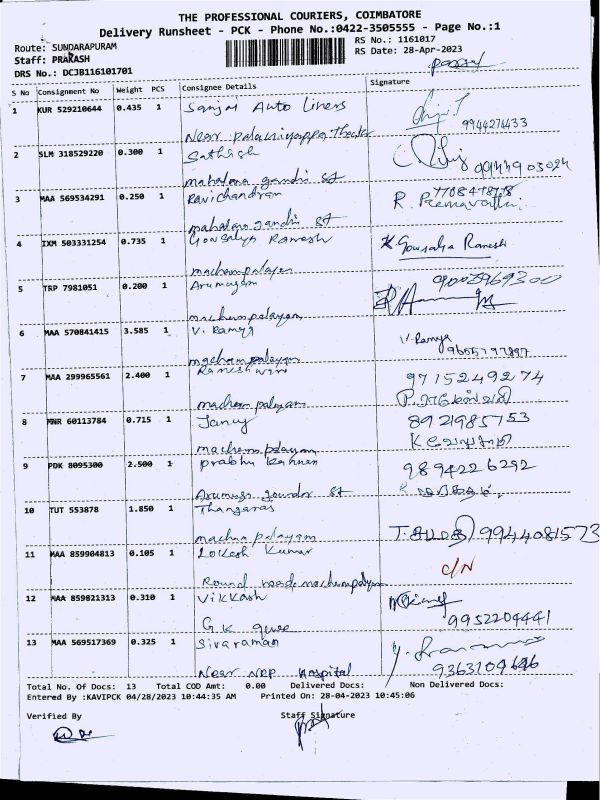 THE PROFESSIONAL COURIERS, COIMBATORE
Delivery Runsheet - PCK - Phone No.:0422-3505555 - Page No.:1
Route: SUNDARAPURAM
RS No.: 1161017
Staff: PRAKASH
RS Date: 28-Apr-2023
DRS No.: DCJB116101701
S No Consignment No Weight PCS Consignee Details Signature
1 KUR 529210644 0.435 1 Sanjai Auto Liners
9944274433
Near palaniyappa Theater
2 SLM 318529220 0.300 1 Sathish
mahatma gandhi st
3 MAA 569534291 0.250 1 Ravichandran R. Premavathi
mahatma gandhi st
4 IXM 503331254 0.735 1 Gowsalya Ramesh K. Gousalya Ramesh
machampalayam
5 TRP 7981051 0.200 1 Arumugam
machampalayam
6 MAA 570841415 3.585 1 V. Ramya V. Ramya
machampalayam
7 MAA 299965561 2.400 1 Rameshwari 9715249274
machampalayam
8 MNR 60113784 0.715 1 8921985153
machampalayam
9 PDK 8095300 2.500 1 Prabhu Kannan 9894226292
Arumuga gounder st
10 TUT 553878 1.850 1 Thangaras
machampalayam 9944081573
11 MAA 859904813 0.105 1 Lokesh Kumar C/N
Round road machampalayam
12 MAA 859821313 0.310 1 Vikkash
G.K 9952204441
13 MAA 569517369 0.325 1 Sivaraman
Near NDP Hospital 9363104646
Total No. Of Docs: 13 Total COD Amt: 0.00 Delivered Docs: Non Delivered Docs:
Entered By :KAVIPCK 04/28/2023 10:44:35 AM Printed On: 28-04-2023 10:45:06
Verified By Staff Signature